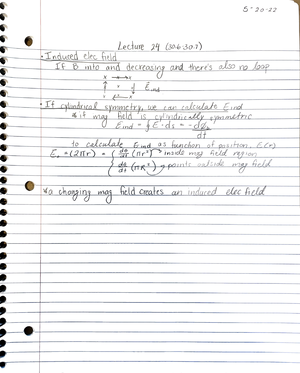 5-20-22
Lecture 29 (30.6 30.7)
• Induced elec field
If B into and decreasing and there's also no loop
x x
E ind
x x
• If cylindrical symmetry, we can calculate E ind
& if mag field is cylindrically symmetric
E ind = ∮ E · ds = -dΦ_B/dt
to calculate E ind as function of position, E(r)
E (2πr) = { dB/dt (πr²) → inside mag field region
dB/dt (πR²) → points outside mag field
* a changing mag field creates an induced elec field